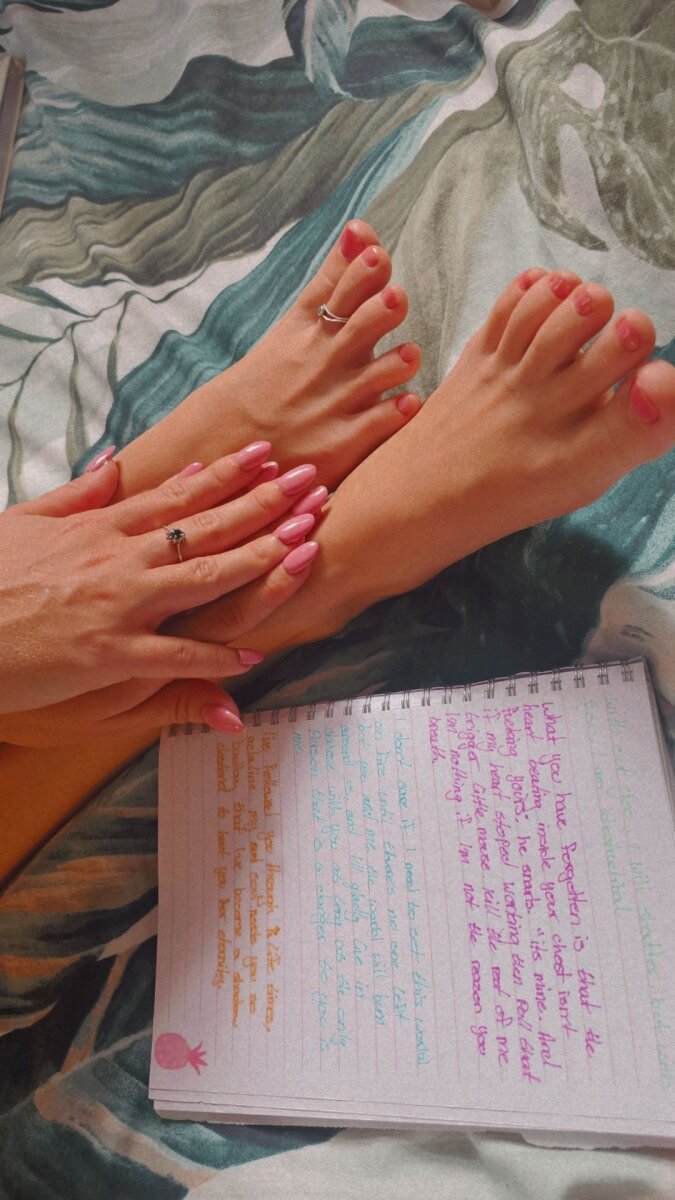 I will shatter, but
What you have forgotten is that the
heart beating inside your chest isn't
fucking yours, he snarls, "its mine. And
if my heart stopped working then Pull that
trigger little mouse, kill the rest of me
Im nothing if Im not the reason you
breath.
I dont care if I need to set this world
on fire until there's no one left
but you and me, the world will burn
around us and I'll gladly live in
with you as long as the only
Person that is a danger to you is
me.
I've followed you through life times,
my soul needs you so
that I've become a shadow
destined to hunt you for eternity.